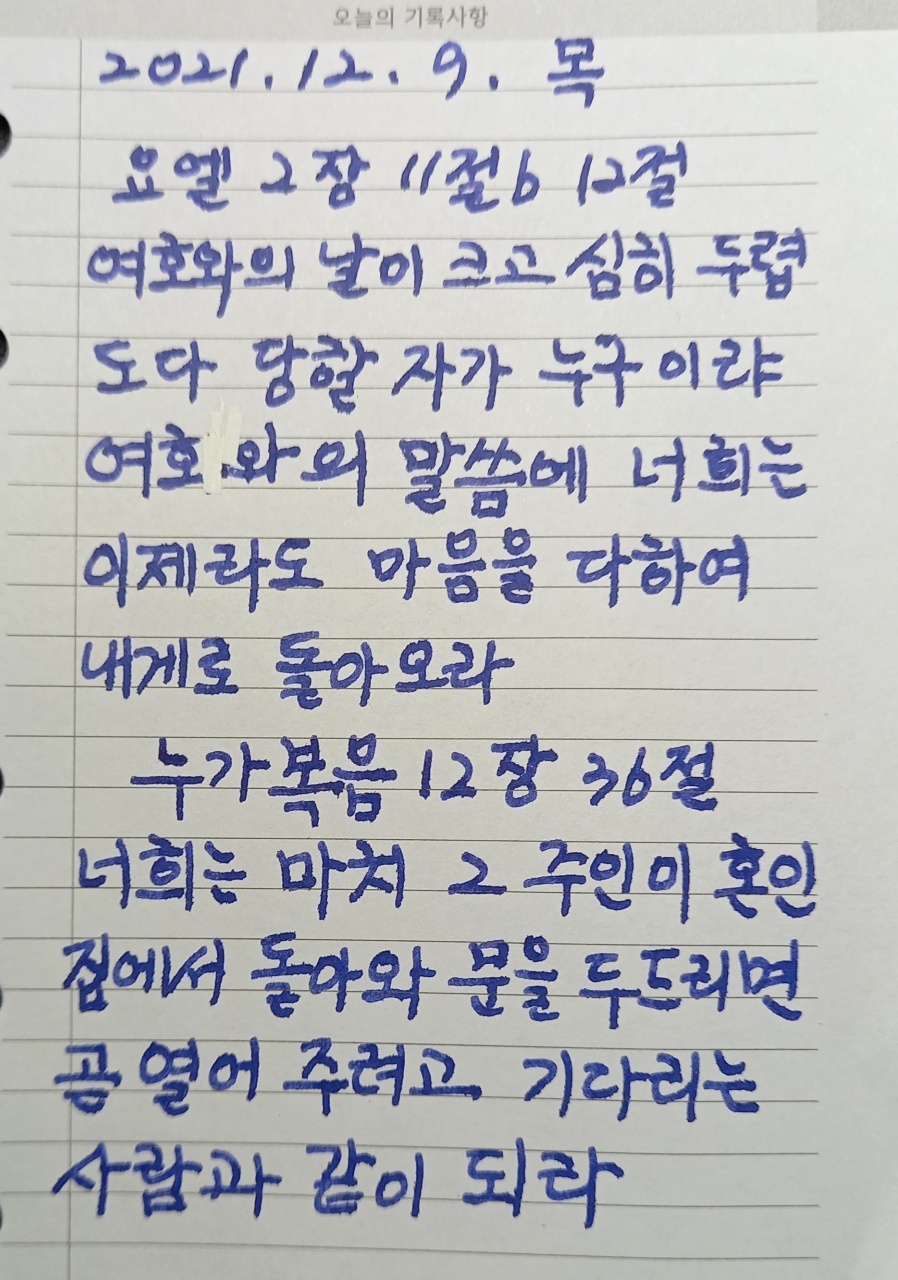 오늘의 기록사항
2021.12.9. 목
요엘 2장 11절b 12절
여호와의 날이 크고 심히 두렵
도다 당할 자가 누구이랴
여호와의 말씀에 너희는
이제라도 마음을 다하여
내게로 돌아오라
누가복음 12장 36절
너희는 마치 그 주인이 혼인
집에서 돌아와 문을 두드리면
곰 열어 주려고 기다리는
사람과 같이 되라